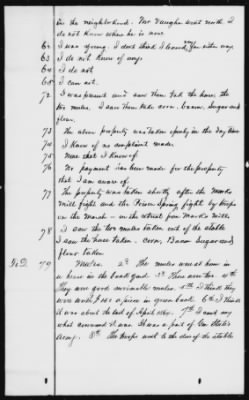 in the neighborhood. Mr Vaughn went north I
do not know where he is now
62 I was young. I dont think I bound for either way
63 I do not know of any
64 I do not
65 I am not.
72 I was present and saw them take the horse, the
two mules. I saw them take corn, bacon, Sugar and
flour.
73 The above property was taken openly in the day time
74 I know of no complaint made
75 None that I know of
76 No payment has been made for the property
that I am aware of
77 The property was taken shortly after the Marks
Mill fight and the Prison Spring fight by troops
on the March - on the retreat from Marks Mills.
78 I saw the two mules taken out of the stable
I saw the horse taken. Corn, Bacon Sugar and
flour taken
79 Mules. 2d The mules were at home in
a house in the back yard 3d There were two 4th
They are good serviceable mules. 5th I think they
were worth $150 a piece in green back 6th I think
it was about the last of April 1864. 7th I cant say
what command it was. It was a part of Gen Steeles
Army. 8th The troops went to the door of the stable